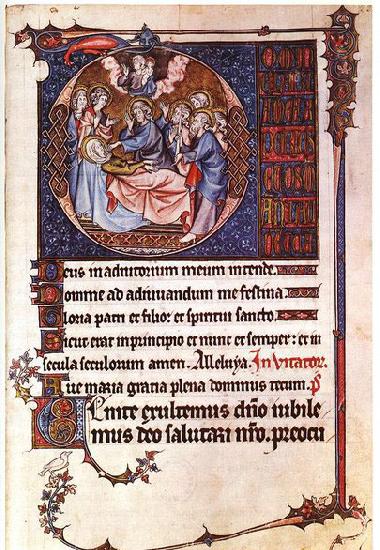 Deus in adiutorium meum intende.
Domine ad adiuuandum me festina
Gloria patri et filio: et spiritui sancto.
Sicut erat in principio et nunc et semper: et in
secula seculorum amen. Alleluya. Inuitator.
Aue maria gratia plena dominus tecum. p̄s
Uenite exultemus dño iubile
mus deo salutari nr̄o. preocu